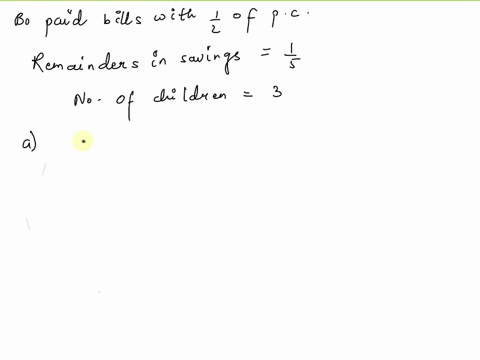 Bo paid bills with 1/2 of p.c.
Remainders in savings = 1/5
No. of children = 3
a)